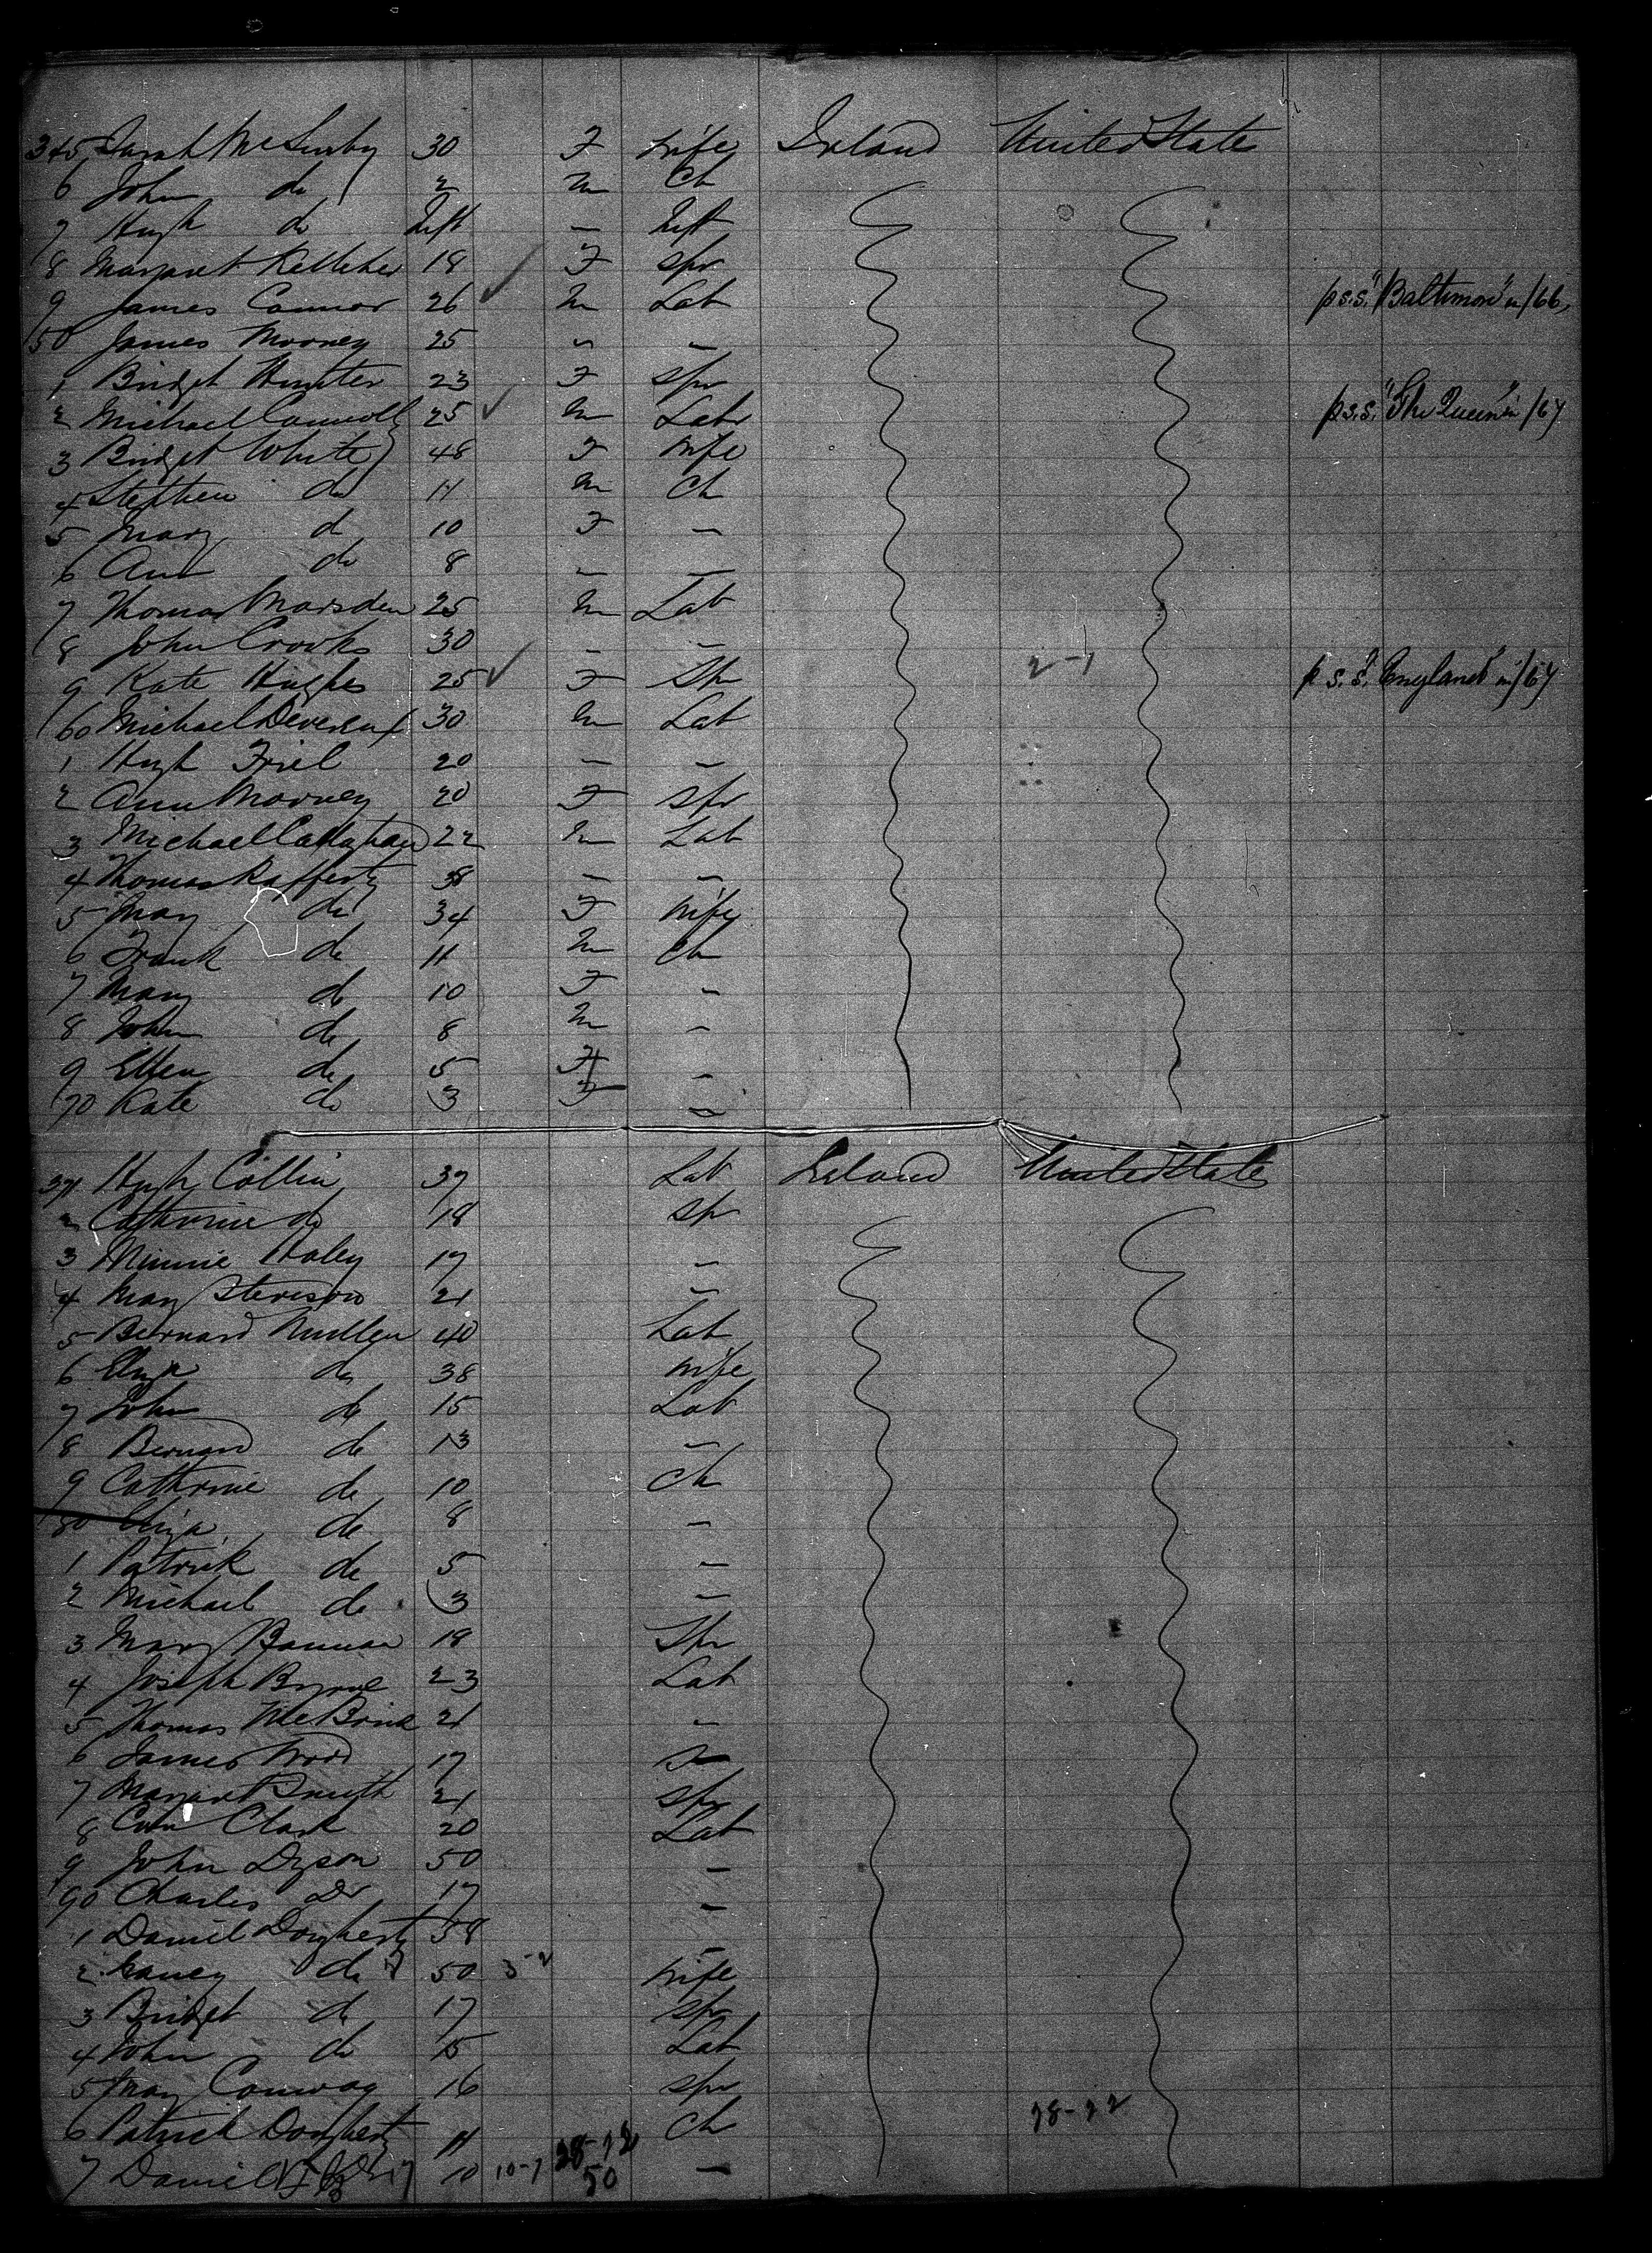 345 Sarah McSurby 30 F wife Ireland United State
6 John do 2 m Ch
7 Hugh do Inft — Inft
8 Margaret Kelleher 18 F spr
9 James Connor 26 ✓ m Lab p s.s. "Baltimore" in /66,
50 James Mooney 25 " –
1 Bridget Hunter 23 F spr
2 Michael Connolly 25 ✓ m Labr p s.s. "The Queen" in /67
3 Bridget White 48 F wife
4 Stephen do 11 m Ch
5 Mary do 10 F –
6 Ann do 8 – –
7 Thomas Marsden 25 m Lab
8 John Crooks 30 – –
9 Kate Hughes 25 ✓ F Spr 2-1 p s.s. "England" in /67
60 Michael Devereux 30 m Lab
1 Hugh Friel 20 – –
2 Ann Mooney 20 F spr
3 Michael Callaghan 22 m Lab
4 Thomas Rafferty 38 – –
5 Mary do 34 F wife
6 Frank do 11 m Ch
7 Mary do 10 F –
8 John do 8 m –
9 Ellen do 5 F –
70 Kate do 3 F –
371 Hugh Collin 37 Lab Ireland United State
2 Catherine do 18 spr
3 Minnie Haley 17 –
4 Mary Stevison 21 –
5 Bernard Mullen 40 Lab
6 Eliza do 38 wife
7 John do 15 Lab
8 Bernard do 13 –
9 Cathrine do 10 ch
80 Eliza do 8 –
1 Patrick do 5 –
2 Michael do 3 –
3 Mary Bannan 18 Spr
4 Joseph Byrne 23 Lab
5 Thomas McBride 21 –
6 James Wood 17
7 Margaret Smyth 21 spr
8 Con Clark 20 Lab
9 John Dyson 50 –
90 Charles Do 17 –
1 Daniel Dougherty 58 –
2 Nancy do 50 3-2 wife
3 Bridget do 17 spr
4 John do 15 Lab
5 Mary Conway 16 spr
6 Patrick Dougherty 11 28-22 ch 28-22
7 Daniel 10 10-7 50 –